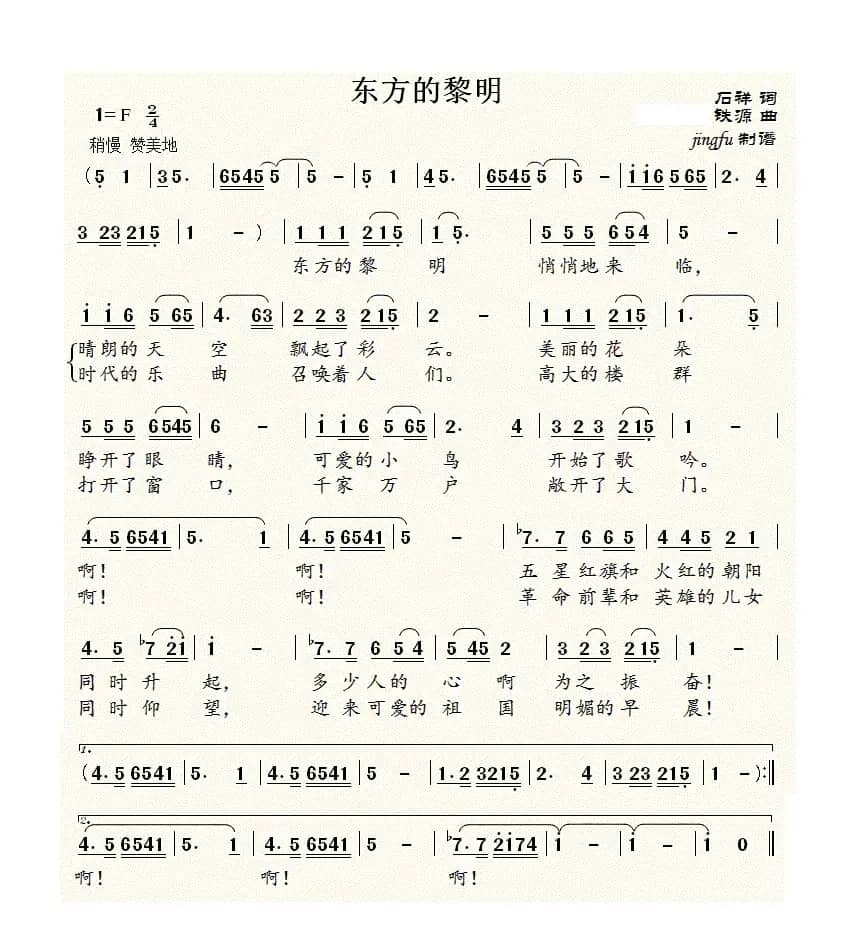 东方的黎明
1=F 2/4
石祥 词
铁源 曲
稍慢 赞美地
jingfu 制谱
( 5 1 | 3 5. | 6545 5 | 5 - | 5 1 | 4 5. | 6545 5 | 5 - | i i 6 5 65 | 2. 4 |
3 23 215 | 1 - ) | 1 1 1 2 1 5 | 1 5. | 5 5 5 6 5 4 | 5 - |
东方的黎 明 悄悄地来 临，
i i 6 5 65 | 4. 63 | 2 2 3 2 1 5 | 2 - | 1 1 1 2 1 5 | 1. 5 |
晴朗的天 空 飘起了彩 云。 美丽的花 朵
时代的乐 曲 召唤着人 们。 高大的楼 群
5 5 5 6 545 | 6 - | i i 6 5 65 | 2. 4 | 3 2 3 2 1 5 | 1 - |
睁开了眼 睛， 可爱的小 鸟 开始了歌 吟。
打开了窗 口， 千家 万 户 敞开了大 门。
4. 5 6541 | 5. 1 | 4. 5 6541 | 5 - | ♭7. 7 6 6 5 | 4 4 5 2 1 |
啊！ 啊！ 五 星红旗和 火红的朝阳
啊！ 啊！ 革 命前辈和 英雄的儿女
4. 5 ♭7 2i | i - | ♭7. 7 6 5 4 | 5 45 2 | 3 2 3 2 1 5 | 1 - |
同 时 升 起， 多 少人的 心 啊 为之 振 奋！
同 时 仰 望， 迎 来可爱的 祖 国 明媚的早 晨！
1.
( 4. 5 6541 | 5. 1 | 4. 5 6541 | 5 - | 1. 2 3215 | 2. 4 | 3 23 215 | 1 - ) :‖
2.
4. 5 6541 | 5. 1 | 4. 5 6541 | 5 - | ♭7. 7 2i74 | i - | i - | i 0 ‖
啊！ 啊！ 啊！